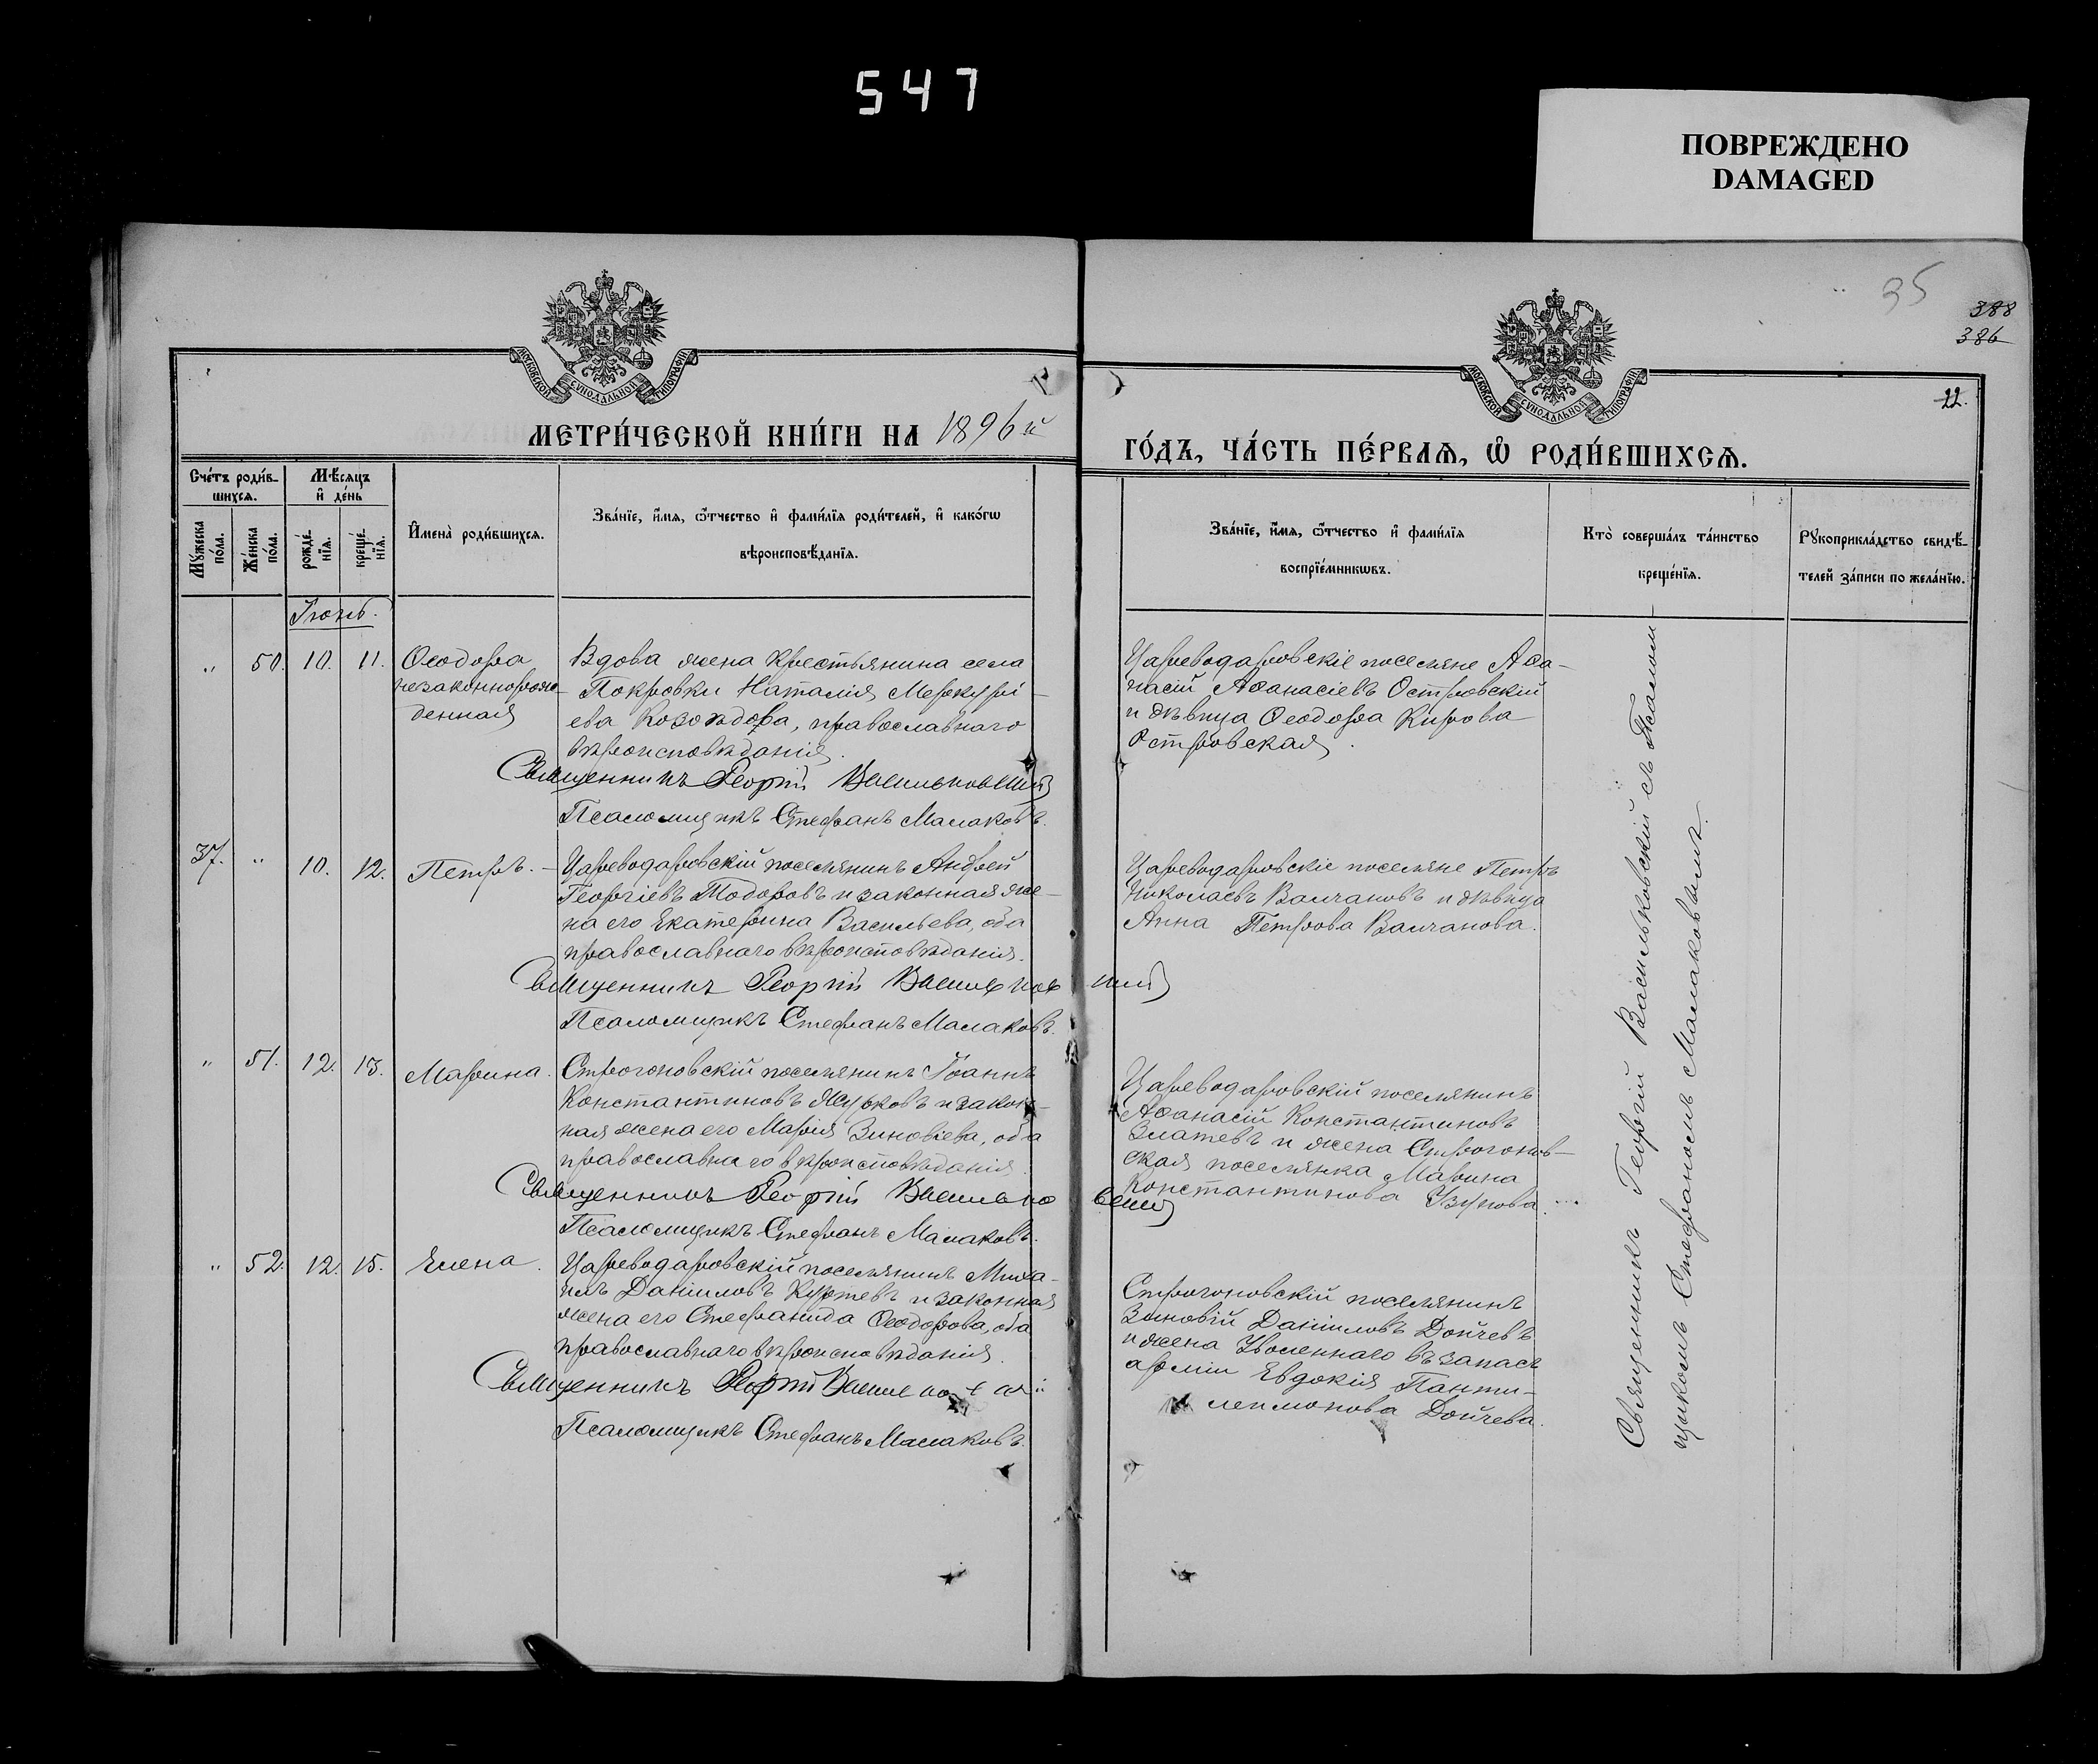 547
ПОВРЕЖДЕНО
DAMAGED
35
388
386
22.
МОСКОВСКОЙ СѴНОДАЛЬНОЙ ТИПОГРАФІИ
МОСКОВСКОЙ СѴНОДАЛЬНОЙ ТИПОГРАФІИ
МЕТРИ́ЧЕСКОЙ КНИ́ГИ НА 1896й
ГО́ДЪ, ЧА́СТЬ ПЕ́РВАѦ, Ѽ РОДИ́ВШИХСѦ.
Сче́тъ роди́в-
шихсѧ.
Мꙋжеска по́ла.
Же́нска по́ла.
Мѣ́сѧцъ
и҆ де́нь
рожде́-нїѧ.
креще́-нїѧ.
И҆мена̀ роди́вшихсѧ.
Зва́нїе, и҆́мѧ, ѻ҆́тчество и҆ фами́лїѧ роди́телей, и҆ како́гѡ
вѣроисповѣ́данїѧ.
Зва́нїе, и҆́мѧ, ѻ҆́тчество и҆ фами́лїѧ
воспрїе́мникѡвъ.
Кто̀ соверша́лъ та́инство
креще́нїѧ.
Рꙋкоприкла́дство свидѣ́-
телей за́писи по жела́нїю.
Іюнь.
" 50. 10. 11. Ѳеодора
незаконнорож-
денная
Вдова жена крестьянина села
Покровки Наталія Меркурі-
ева Козоѣдова, православнаго
вѣроисповѣданія.
Священникъ Георгій Васильковскій
Псаломщикъ Стефанъ Малаковъ.
Цареводаровскіе поселяне Аѳа-
насій Аѳанасіевъ Островскій
и дѣвица Ѳеодора Кирова
Островская.
37. " 10. 12. Петръ. -
Цареводаровскій поселянинъ Андрей
Георгіевъ Тодоровъ и законная же-
на его Екатерина Васильева, оба
православнаго вѣроисповѣданія.
Священникъ Георгій Васильковскій
Псаломщикъ Стефанъ Малаковъ.
Цареводаровскіе поселяне Петръ
Николаевъ Валчановъ и дѣвица
Анна Петрова Валчанова.
" 51. 12. 13. Марина.
Строгоновскій поселянинъ Іоаннъ
Константиновъ Журковъ и закон-
ная жена его Марія Зиновіева, оба
православнаго вѣроисповѣданія.
Священникъ Георгій Васильковскій
Псаломщикъ Стефанъ Малаковъ.
Цареводаровскій поселянинъ
Аѳанасій Константиновъ
Златевъ и жена Строгонов-
ская поселянка Марина
Константинова Узунова.
" 52. 12. 15. Елена.
Цареводаровскій поселянинъ Миха-
илъ Даніиловъ Куртевъ и законная
жена его Стефанида Ѳеодорова, оба
православнаго вѣроисповѣданія.
Священникъ Георгій Васильковскій
Псаломщикъ Стефанъ Малаковъ.
Строгоновскій поселянинъ
Зиновій Даніиловъ Дойчевъ
и жена Уволеннаго въ запасъ
арміи Евдокія Панти-
леимонова Дойчева.
Священникъ Георгій Васильковскій съ Псалом
щикомъ Стефаномъ Малаковымъ.